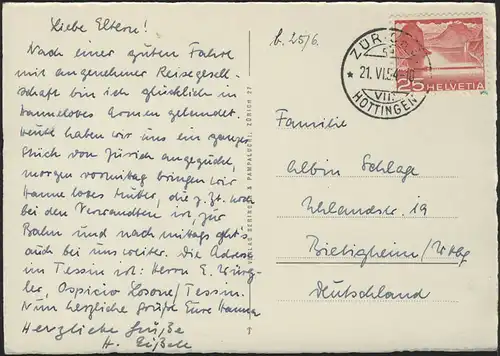 Liebe Eltern!
Nach einer guten Fahrt
mit angenehmer Reisegesell-
schaft bin ich glücklich in
Hanneloves Armen gelandet.
Heute haben wir uns ein ganzes
Stück von Zürich angeguckt,
morgen vormittag bringen wir
Hanneloves Mutter, die z. Zt. noch
bei den Verwandten ist, zur
Bahn und nachmittags geht's
auch bei uns weiter. Die Adresse
im Tessin ist: Herrn E. Würg-
ler, Ospicio Losone/Tessin.
Nun herzliche Grüße Eure Hanna
Herzliche Grüße
H.
b. 25/6.
ZÜRICH
21. VI. 54
VIII
HOTTINGEN
25 HELVETIA
Familie
Albin Schlage
Uhlandstr. 19
Bietigheim/Wttbg
Deutschland
VERLAG BERINGER & PAMPALUCHI, ZÜRICH 27